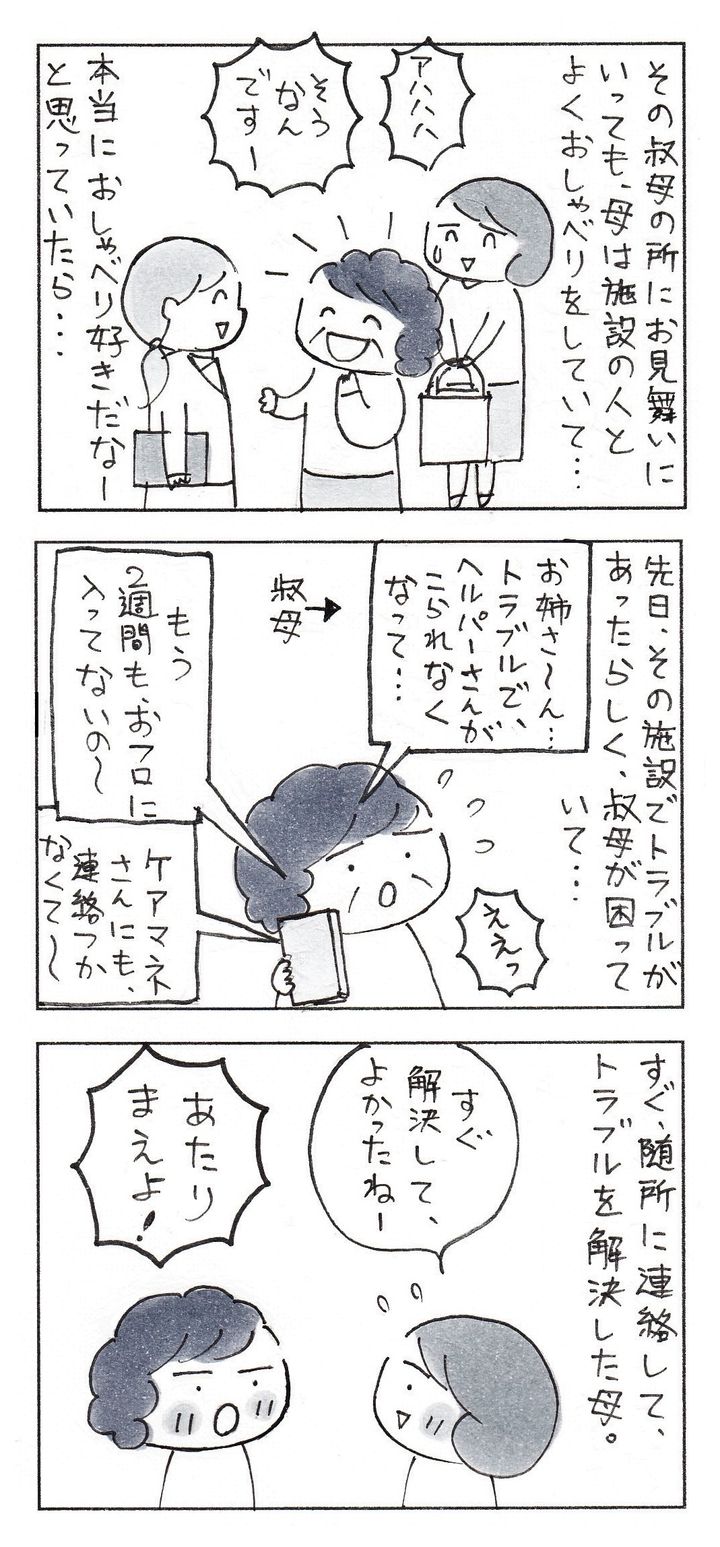 その叔母の所にお見舞いに
いっても、母は施設の人と
よくおしゃべりをしていて…
アハハハ
そう
なん
ですー
本当におしゃべり好きだなー
と思っていたら…
先日、その施設でトラブルが
あったらしく、叔母が困って
いて…
お姉さ〜ん…
トラブルで、
ヘルパーさんが
こられなく
なって…
叔母→
もう
2週間も、おフロに
入ってないの〜
ええっ
ケアマネ
さんにも、
連絡つか
なくて〜
すぐ、随所に連絡して、
トラブルを解決した母。
すぐ
解決して、
よかったねー
あたり
まえよ!